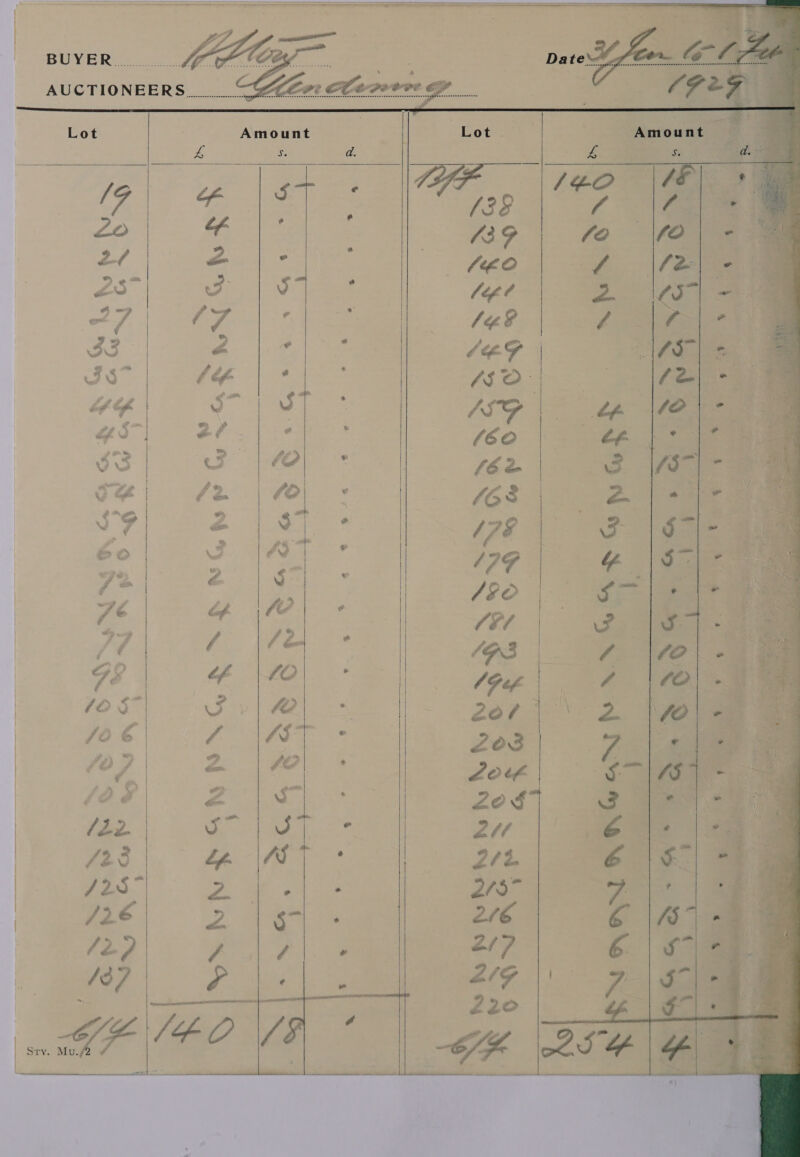 BUYER
AUCTIONEERS Glendining
Date 31 Jan to 1 Feb
1929
Lot Amount Lot Amount
£ s. d. £ s. d.
19 4 5 -
20 4 - -
21 2 - -
25 3 5 -
27 17 - -
33 2 - -
35 14 - -
44 5 5 -
45 21 - -
53 3 10 -
54 12 10 -
59 2 5 -
60 3 15 -
72 2 5 -
76 4 10 -
77 1 12 -
98 4 10 -
105 3 10 -
106 1 15 -
107 2 10 -
108 2 5 -
122 5 5 -
123 4 15 -
125 2 - -
126 2 5 -
127 1 1 -
137 8 - -
C/F 140 18 -
Srv. Mu./2
B/F 140 18 -
138 1 1 -
139 10 10 -
140 1 12 -
141 2 15 -
148 1 1 -
149 15 -
150 12 -
159 4 10 -
160 4 - -
162 3 15 -
163 2 - -
178 3 5 -
179 4 5 -
180 5 - -
181 3 5 -
193 1 10 -
194 1 10 -
201 2 10 -
203 7 - -
204 5 15 -
205 3 - -
211 6 - -
212 6 5 -
215 7 - -
216 6 15 -
217 6 5 -
219 7 5 -
220 4 5 -
C/F 254 4 -